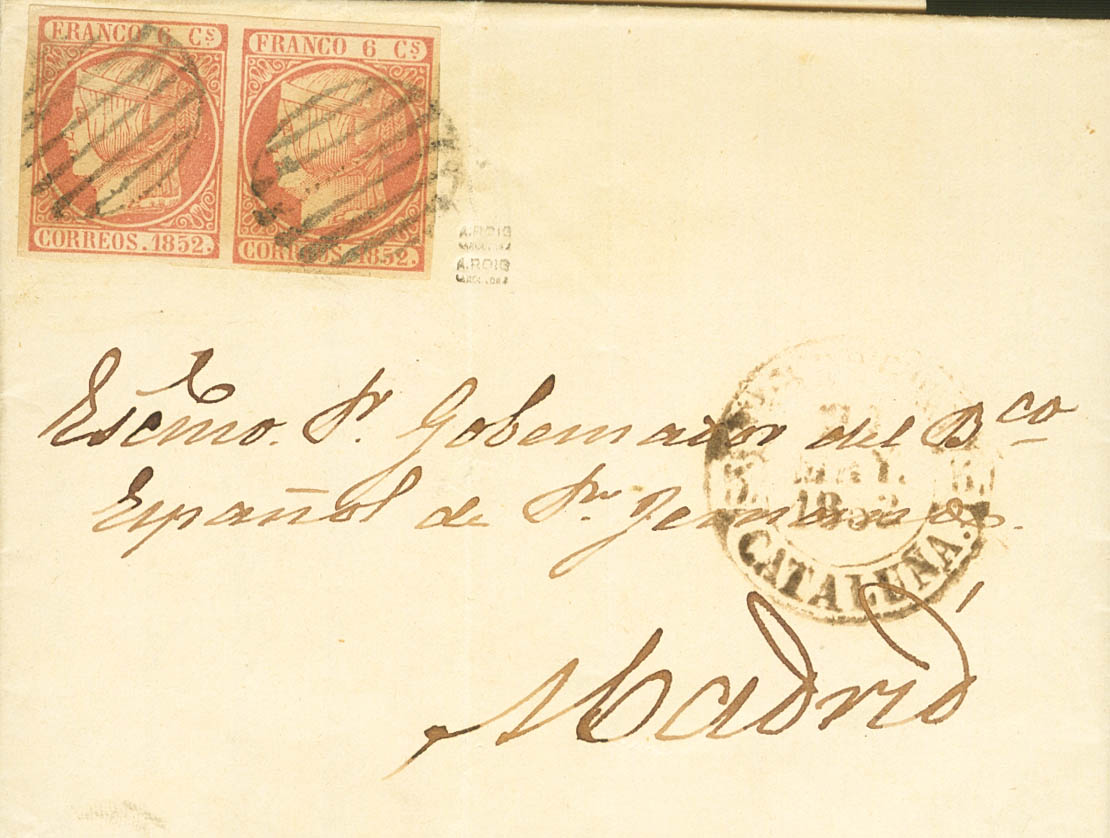 FRANCO 6 Cs
CORREOS. 1852.
FRANCO 6 Cs
CORREOS. 1852.
A. ROIG
BARCELONA
A. ROIG
BARCELONA
Escmo. Sr. Gobernador del Bco
Español de Sn. Fernando.
Madrid
1852
CATALUÑA.